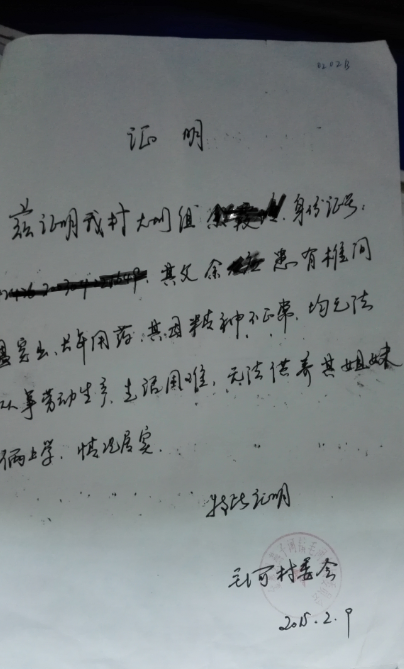 02028
证明
兹证明我村大刘组 身份证号:
其父余 患有椎间
盘突出、长年用药,其母精神不正常,均无法
从事劳动生产,生活困难,无法供养其姐妹
俩上学,情况属实。
特此证明
毛河村委会
2015.2.9